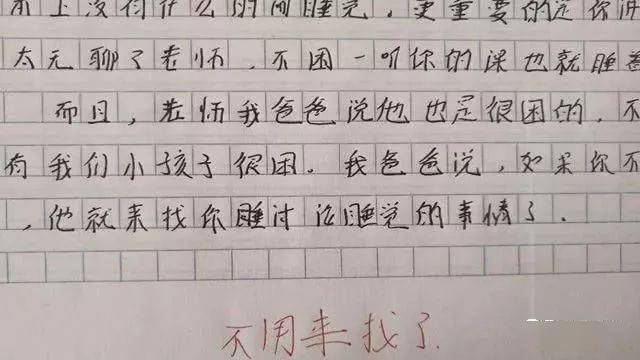 本上没有什么时间睡觉，更重要的是你讲
太无聊了老师，不困一听你的课也就睡着
而且，老师我爸爸说他也是很困的，不
有我们小孩子很困。我爸爸说，如果你不
，他就来找你睡讨论睡觉的事情了。
不用来找了.